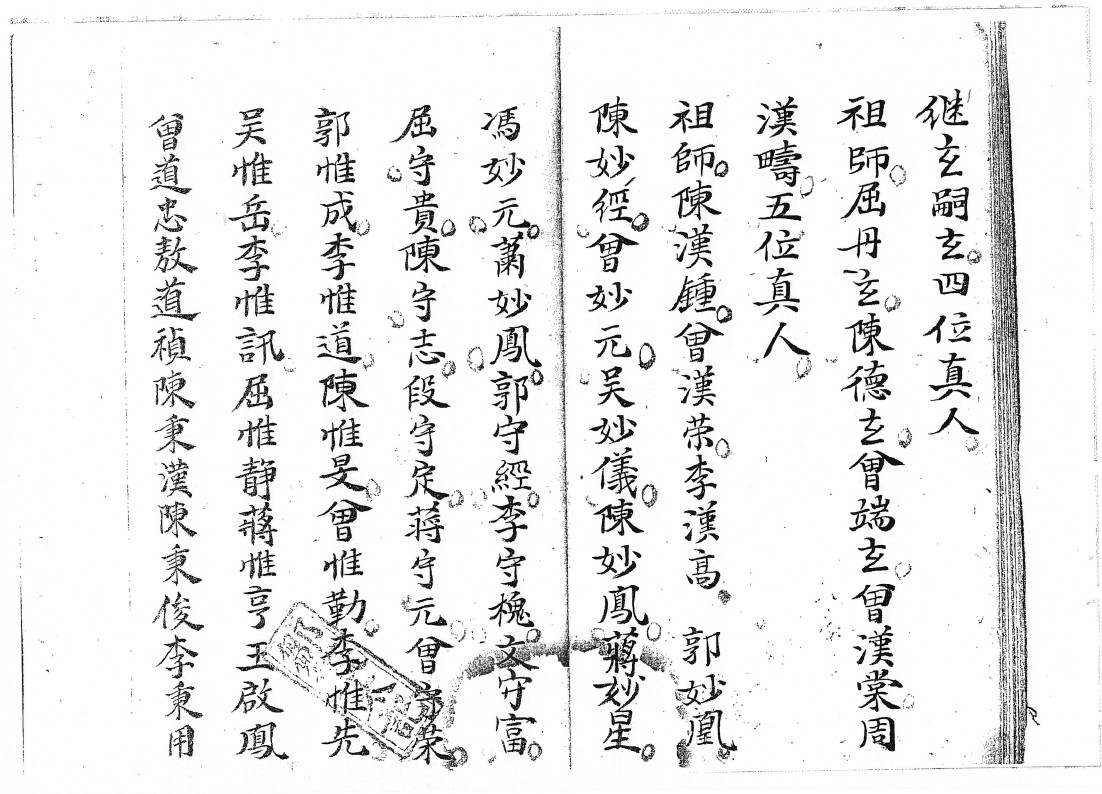 继玄嗣玄四位真人
祖師屈丹玄陳德玄曾端玄曾漢棠周
漢疇五位真人
祖師陳漢鍾曾漢荣李漢高 郭妙凰
陳妙經曾妙元吴妙儀陳妙鳳蔣妙星
馮妙元蕭妙鳳郭守經李守槐文守富
屈守貴陳守志段守定蔣守元曾守荣
郭惟成李惟道陳惟旻曾惟勤李惟先
吴惟岳李惟訊屈惟静蔣惟亨王啟鳳
曾道忠敖道禎陳秉漢陳秉俊李秉用